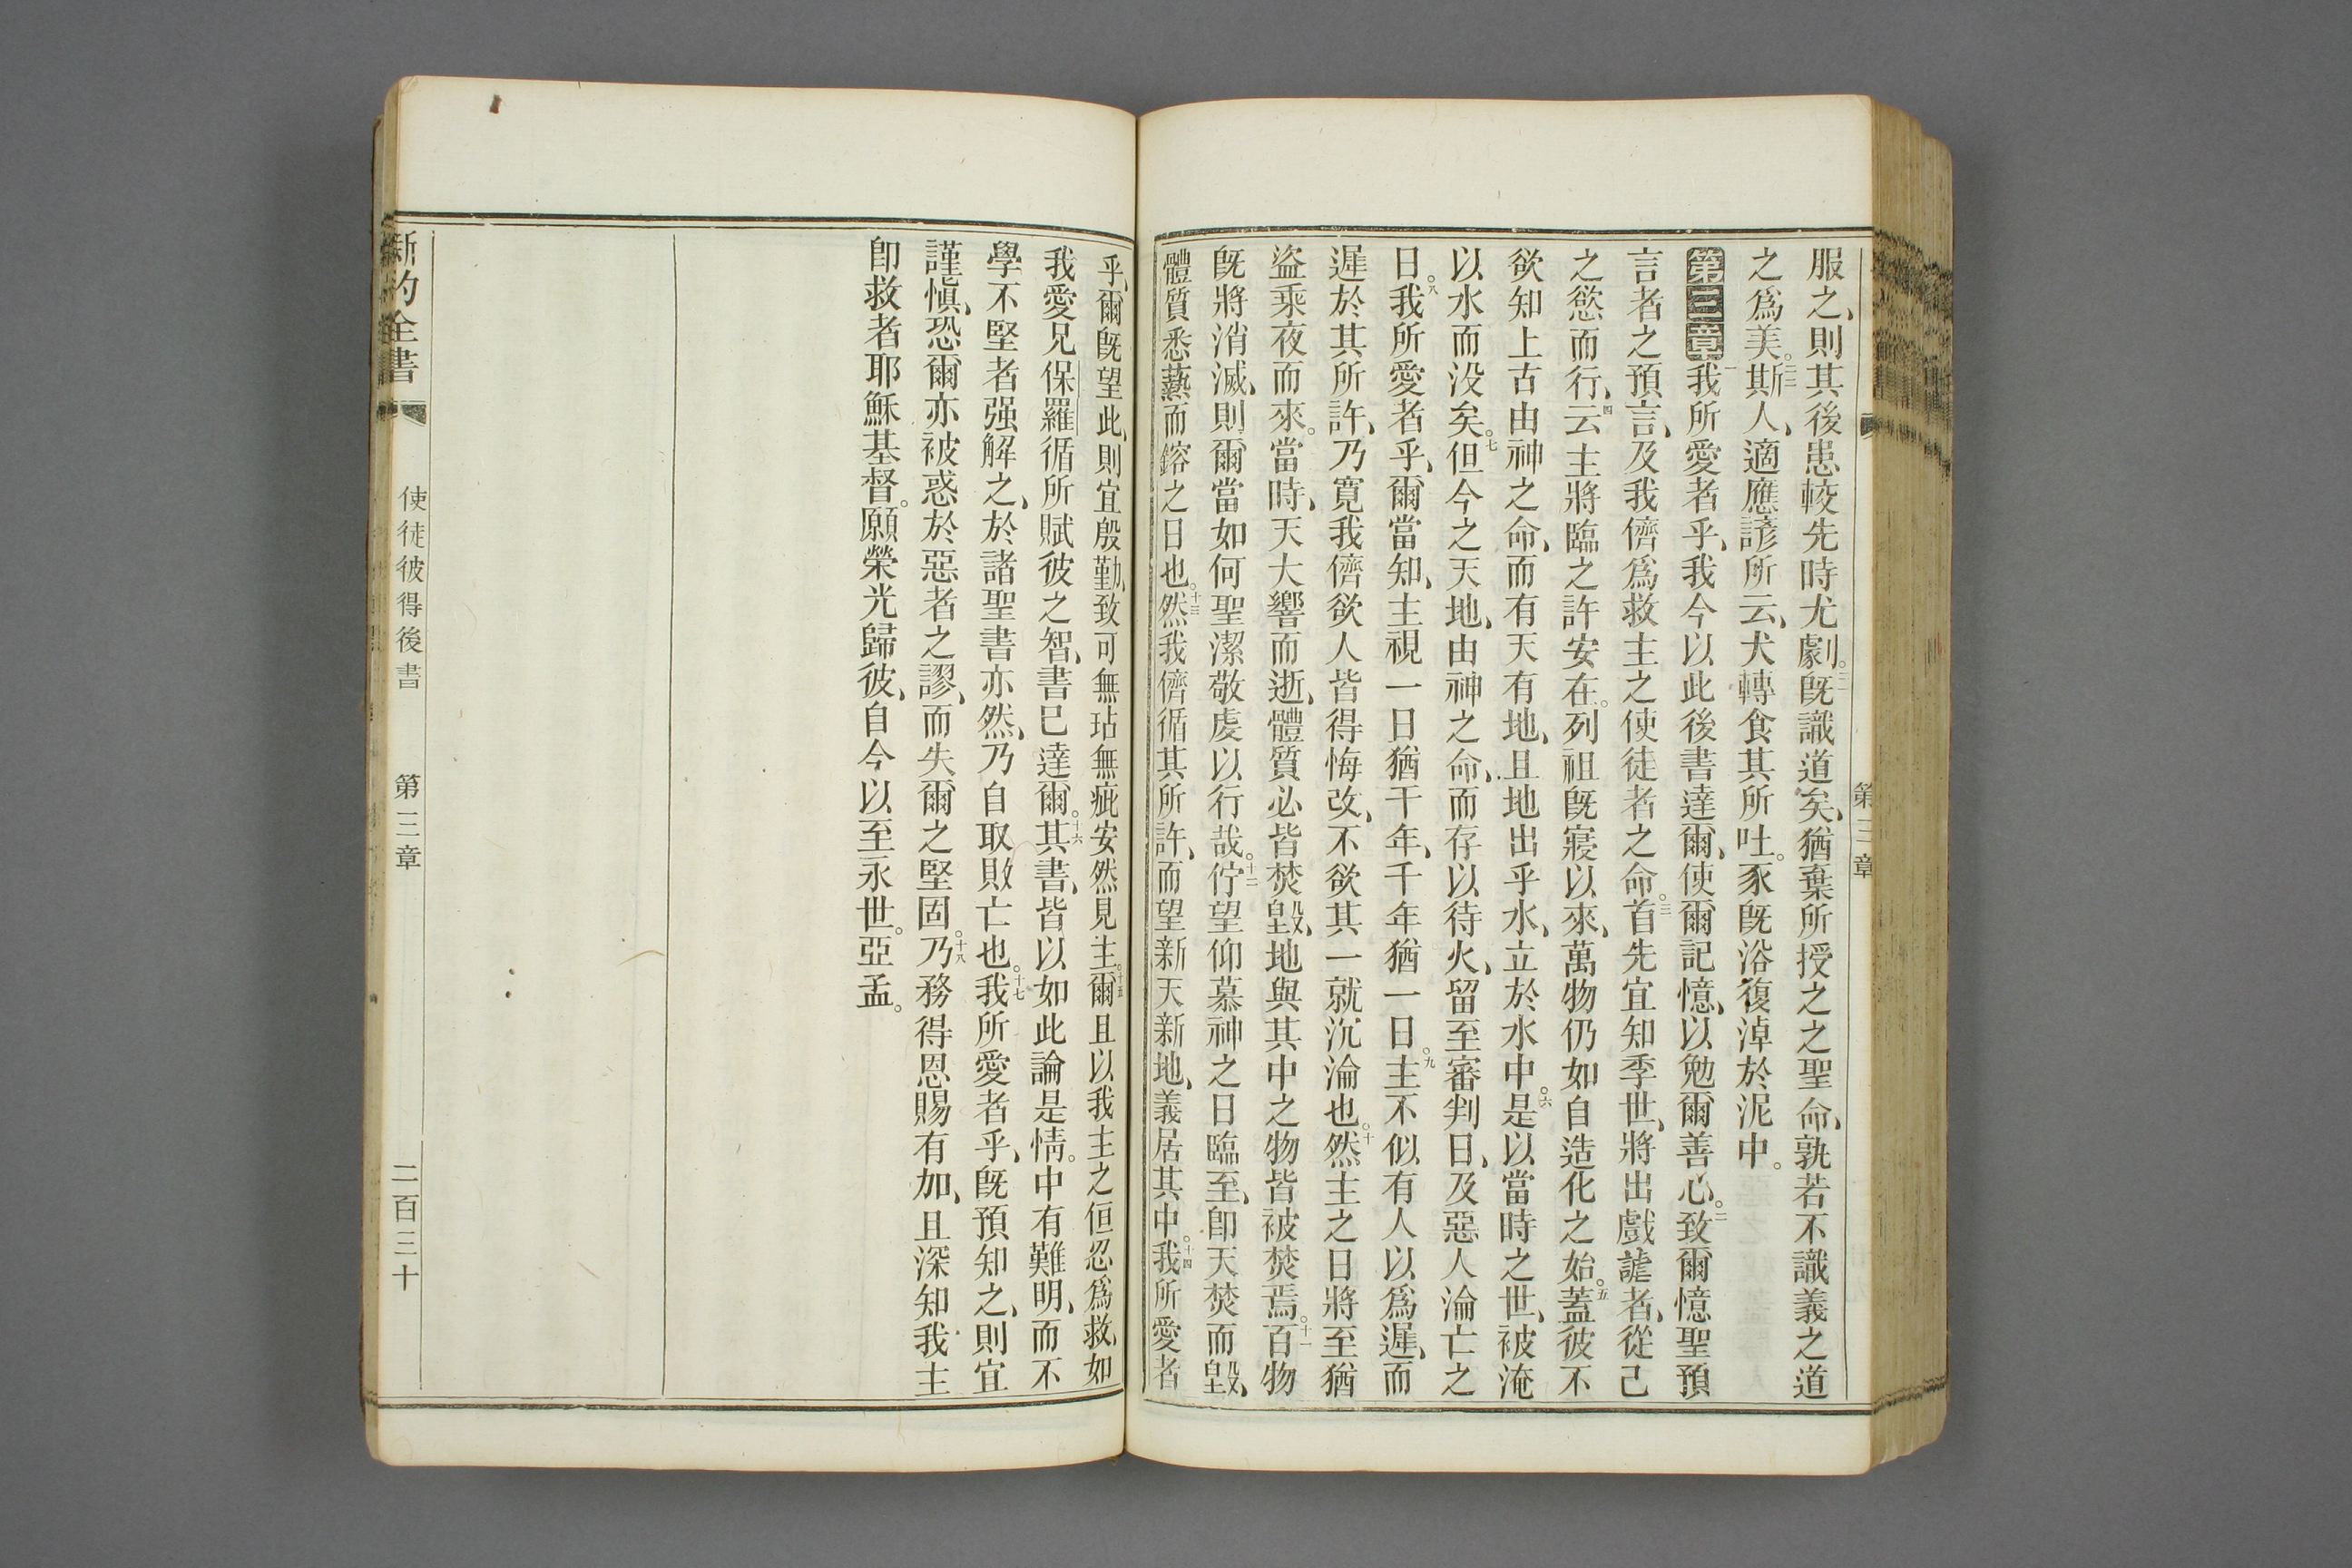 服之、則其後患較先時尤劇。二一既識道矣、猶棄所授之之聖命、孰若不識義之道
之爲美。二二斯人、適應諺所云、犬轉食其所吐。豕既浴復淖於泥中。
第三章一我所愛者乎、我今以此後書達爾、使爾記憶、以勉爾善心。二致爾憶聖預
言者之預言、及我儕爲救主之使徒者之命。三首先宜知季世、將出戲謔者、從己
之慾而行、四云主將臨之許安在。列祖既寢以來、萬物仍如自造化之始。五蓋彼不
欲知上古由神之命、而有天有地、且地出乎水、立於水中。六是以當時之世、被淹
以水而没矣。七但今之天地、由神之命、而存以待火、留至審判日、及惡人淪亡之
日。八我所愛者乎、爾當知、主視一日猶千年、千年猶一日。九主不似有人以爲遲、而
遲於其所許、乃寬我儕欲人皆得悔改、不欲其一就沉淪也。十然主之日將至猶
盜乘夜而來。當時、天大響而逝、體質必皆焚毀、地與其中之物皆被焚焉。十一百物
既將消滅、則爾當如何聖潔敬虔以行哉。十二佇望仰慕神之日臨至、卽天焚而毀、
體質悉爇而鎔之日也。十三然我儕循其所許、而望新天新地、義居其中。十四我所愛者
乎、爾既望此、則宜殷勤、致可無玷無疵安然見主。十五爾且以我主之恒忍爲救、如
我愛兄保羅循所賦彼之智、書已達爾。十六其書、皆以如此論是情。中有難明、而不
學不堅者强解之、於諸聖書亦然、乃自取敗亡也。十七我所愛者乎、既預知之、則宜
謹慎、恐爾亦被惑於惡者之謬、而失爾之堅固。十八乃務得恩賜有加、且深知我主
卽救者耶穌基督。願榮光歸彼、自今以至永世。亞孟。
新約全書
使徒彼得後書
第三章
二百三十
第三章